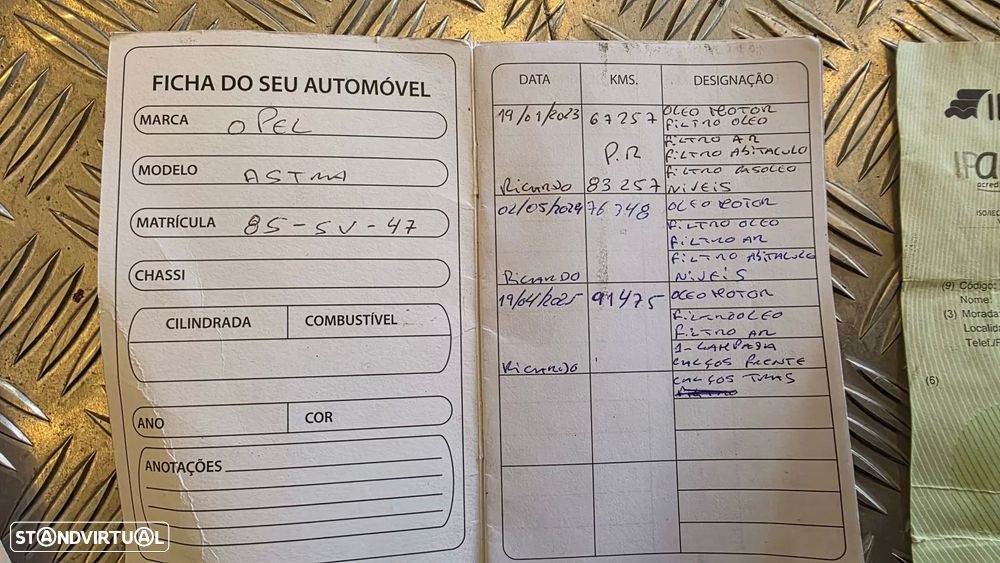 FICHA DO SEU AUTOMÓVEL
MARCA OPEL
MODELO ASTRA
MATRÍCULA 85-SV-47
CHASSI
CILINDRADA COMBUSTÍVEL
ANO COR
ANOTAÇÕES
DATA KMS. DESIGNAÇÃO
19/01/2023 67257 OLEO MOTOR
FILTRO OLEO
FILTRO AR
P.R FILTRO ABITACULO
FILTRO GASOLEO
RICARDO 83257 NIVEIS
02/05/2024 76348 OLEO MOTOR
FILTRO OLEO
FILTRO AR
FILTRO ABITACULO
RICARDO NIVEIS
19/04/2025 91475 OLEO MOTOR
FILTRO OLEO
FILTRO AR
1-LAMPADA
RICARDO CALÇOS FRENTE
CALÇOS TRAS
(9) Código:
Nome:
(3) Morada:
Localid
Telef./F
(6)
STANDVIRTUAL